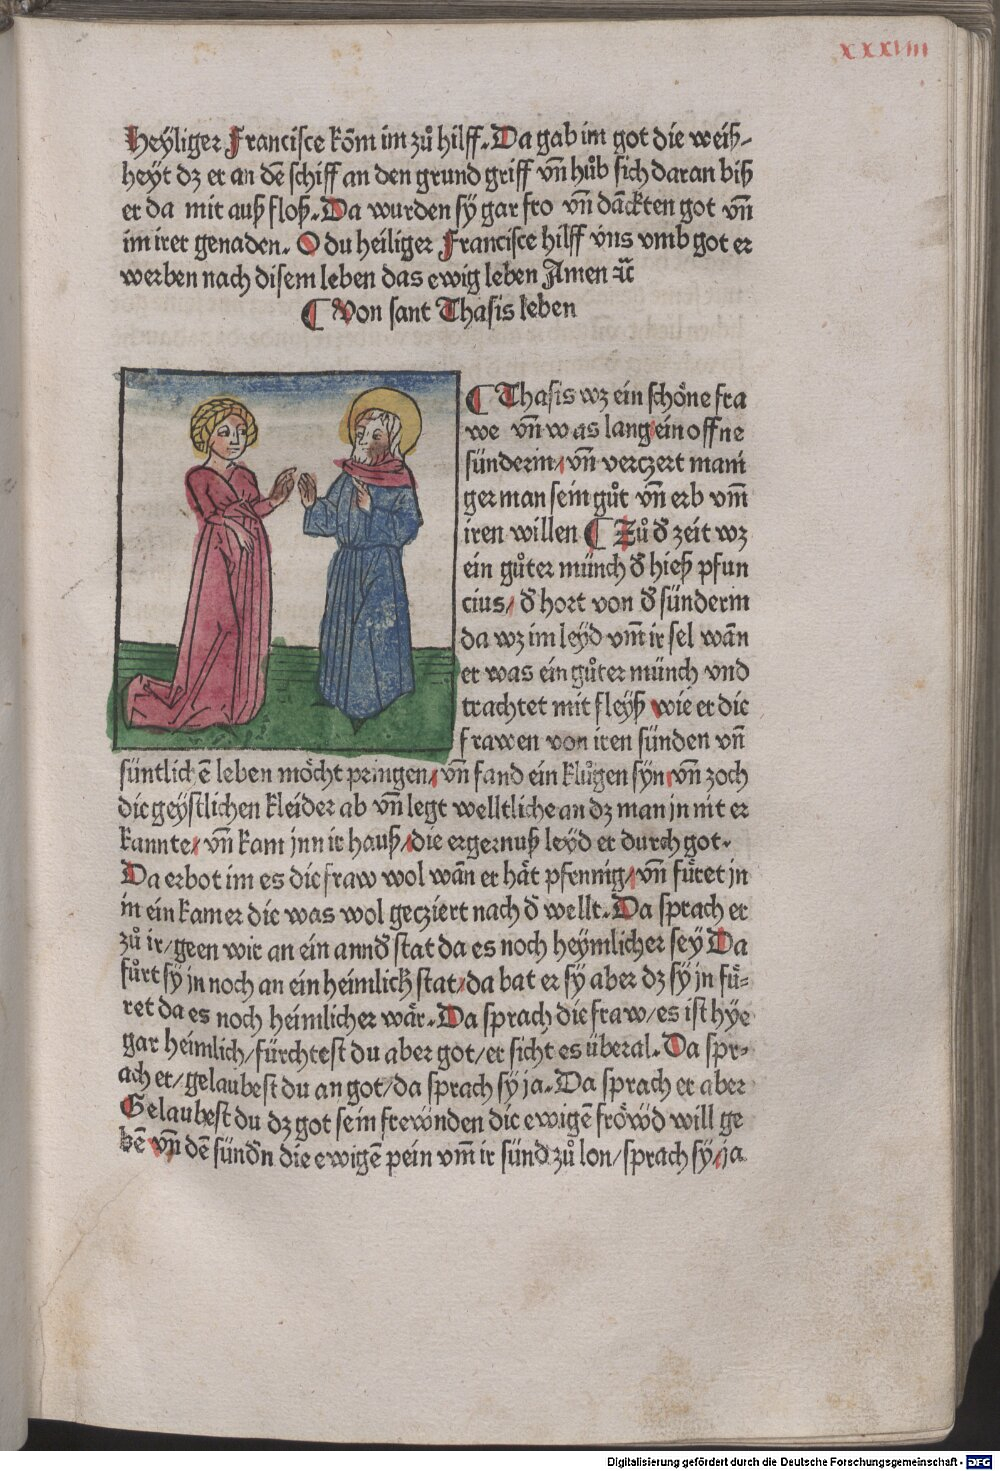 xxxviii
Heyliger Francisce kōm im zů hilff. Da gab im got die weiß-
heyt dz er an dē schiff an den grund griff vn̄ hůb sich daran biß
er da mit auß floß. Da wurden sy gar fro vn̄ dāckten got vn̄
im irer genaden. O du heiliger Francisce hilff vns vmb got er
werben nach disem leben das ewig leben Amen ꝛc̄
¶ Von sant Thasis leben
¶ Thasis wz ein schöne fra
we vn̄ was lang ein offne
sünderin/ vn̄ verczert mani
ger man sein gůt vn̄ erb vm̄
iren willen ¶ Zů d̕ zeit wz
ein gůter münch d̕ hieß pfun
cius/ d̕ hort von d̕ sünderin
da wz im leyd vm̄ ir sel wān
er was ein gůter münch vnd
trachtet mit fleyß wie er die
frawen von iren sünden vn̄
süntlichē leben möcht pringen/ vn̄ fand ein klůgen syn vn̄ zoch
die geystlichen kleider ab vn̄ legt welltliche an dz man jn nit er
kannte/ vn̄ kam jnn ir hauß/ die ergernuß leyd er durch got.
Da erbot im es die fraw wol wān er hät pfennig/ vn̄ füret jn
in ein kamer die was wol gecziert nach d̕ wellt. Da sprach er
zů ir/ geen wir an ein annd̕ stat da es noch heymlicher sey Da
fůrt sy jn noch an ein heimlich stat/ da bat er sy aber dz sy jn fü-
ret da es noch heimlicher wär. Da sprach die fraw/ es ist hye
gar heimlich/ fürchtest du aber got/ er sicht es überal. Da spr-
ach er/ gelaubest du an got/ da sprach sy ja. Da sprach er aber
Gelaubest du dz got sein frewnden die ewigē fröwd will ge
bē vn̄ dē sünd̕n die ewigē pein vm̄ ir sünd zů lon/ sprach sy/ ja
Digitalisierung gefördert durch die Deutsche Forschungsgemeinschaft - DFG